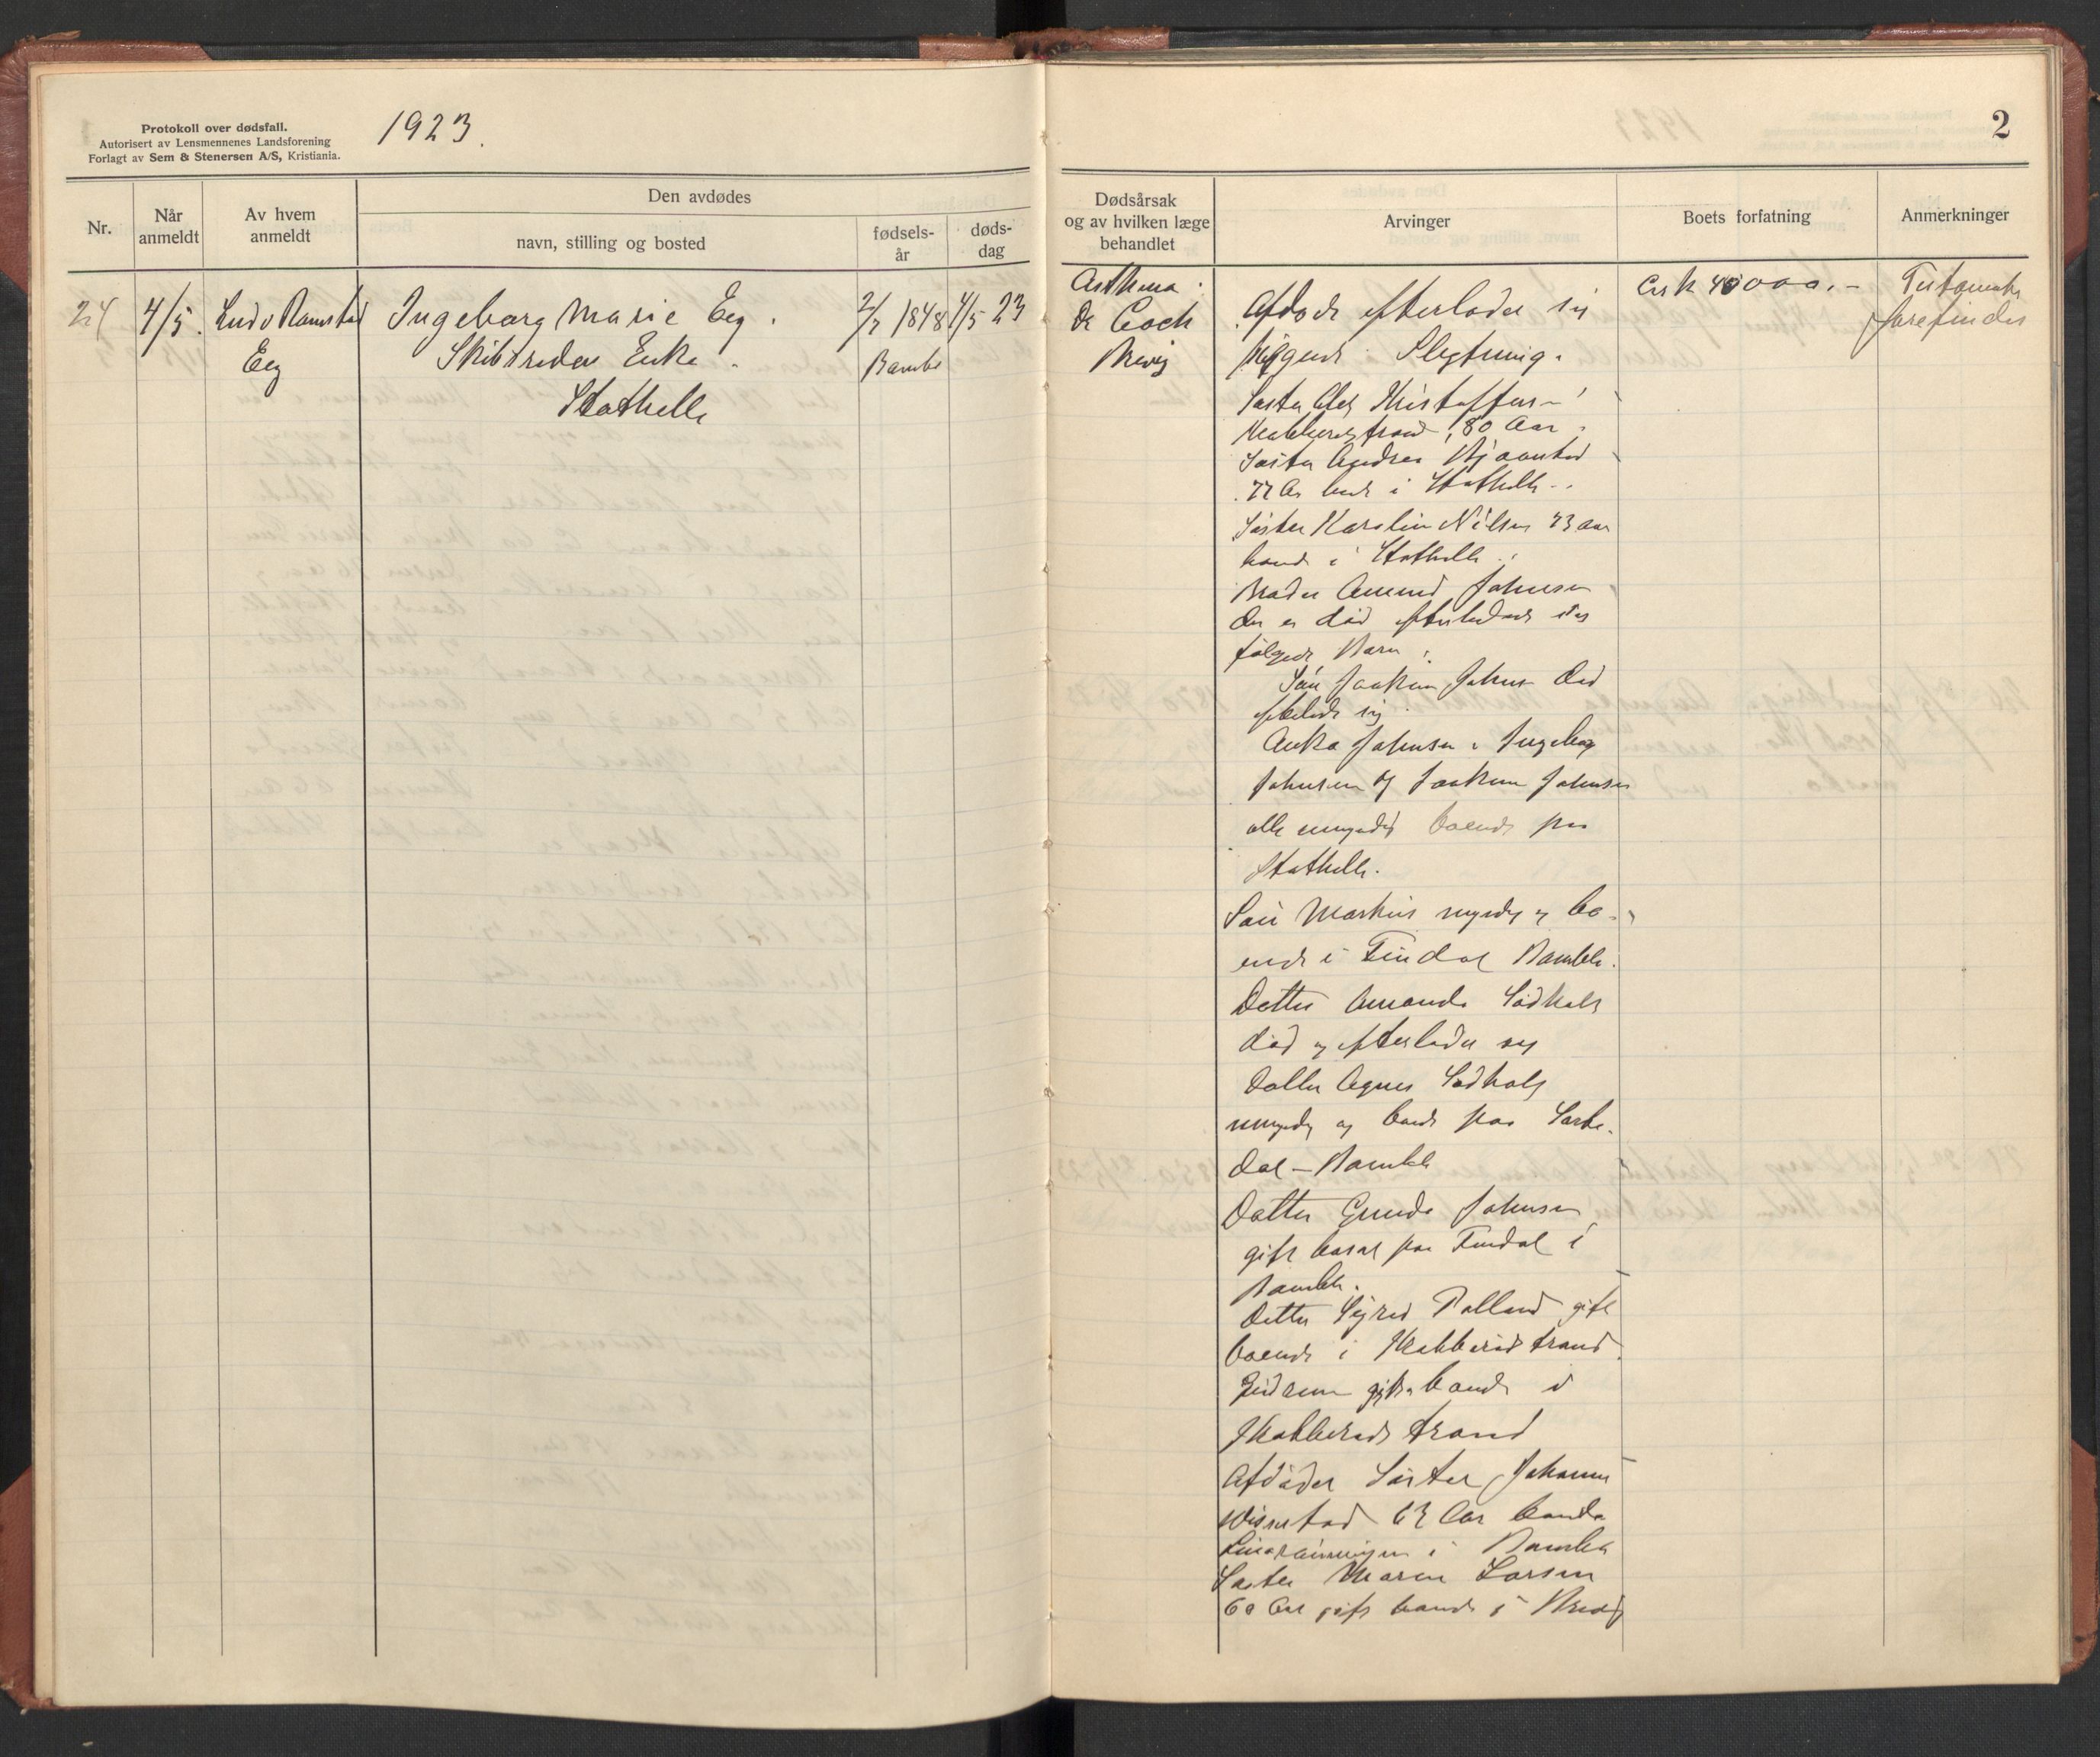 Protokoll over dødsfall.
Autorisert av Lensmennenes Landsforening
Forlagt av Sem & Stenersen A/S, Kristiania.
1923.
2
Nr.
Når anmeldt
Av hvem anmeldt
Den avdødes
navn, stilling og bosted
fødsels-år
døds-dag
Dødsårsak og av hvilken læge behandlet
Arvinger
Boets forfatning
Anmerkninger
24
4/5.
Ludv Ramstad
Eeg
Ingeborg Marie Eeg.
Skibsreder Enke.
Stathelle
2/7 1848
Bamble
4/5 23
Asthma
Dr Coch
Brevig
Afdøde efterlader sig
følgende Slegtning.
Søster Kristoffersen
Krabberødstrand, 80 Aar.
Søster Andrea
77 Aar boende i Stathelle.
Søster Karoline Nilsen 73 aar
boende i Stathelle.
Broder Amund Johnsen
der er død efterladende sig
følgende Barn:
Søn Joakim Johnsen død
efterlader sig
Anka Johnsen, Ingeborg
Johnsen og Joakim Johnsen
alle umyndig boende paa
Stathelle.
Søn Markus myndig og bo-
ende i Findal Bamble.
Datter Amanda
død og efterlader sig
Datter Agnes
umyndig og boende paa
dal - Bamble
Datter Gunda Johnsen
gift bosat paa Findal i
Bamble.
Datter Sigrid gift
boende i Krabberødstrand.
gift boende i
Krabberødstrand
Afdødes Søster
63 Aar boende
i Bamble
Søster Maren Larsen
60 Aar gift boende i Brevig
Ca k 40000.-
Testamente
forefindes